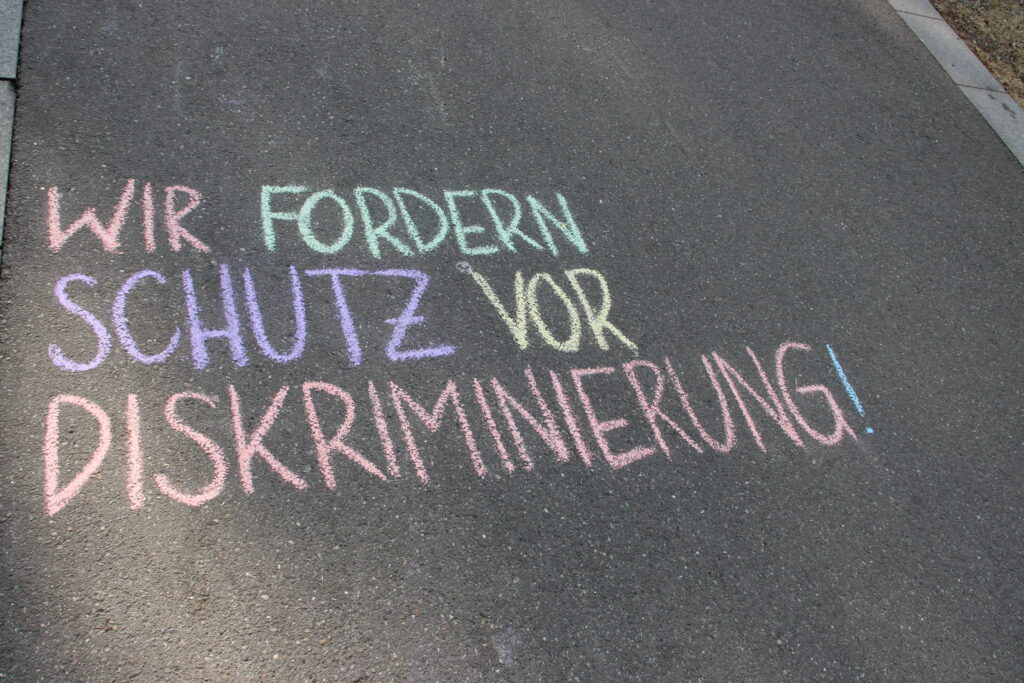 WIR FORDERN
SCHUTZ VOR
DISKRIMINIERUNG!